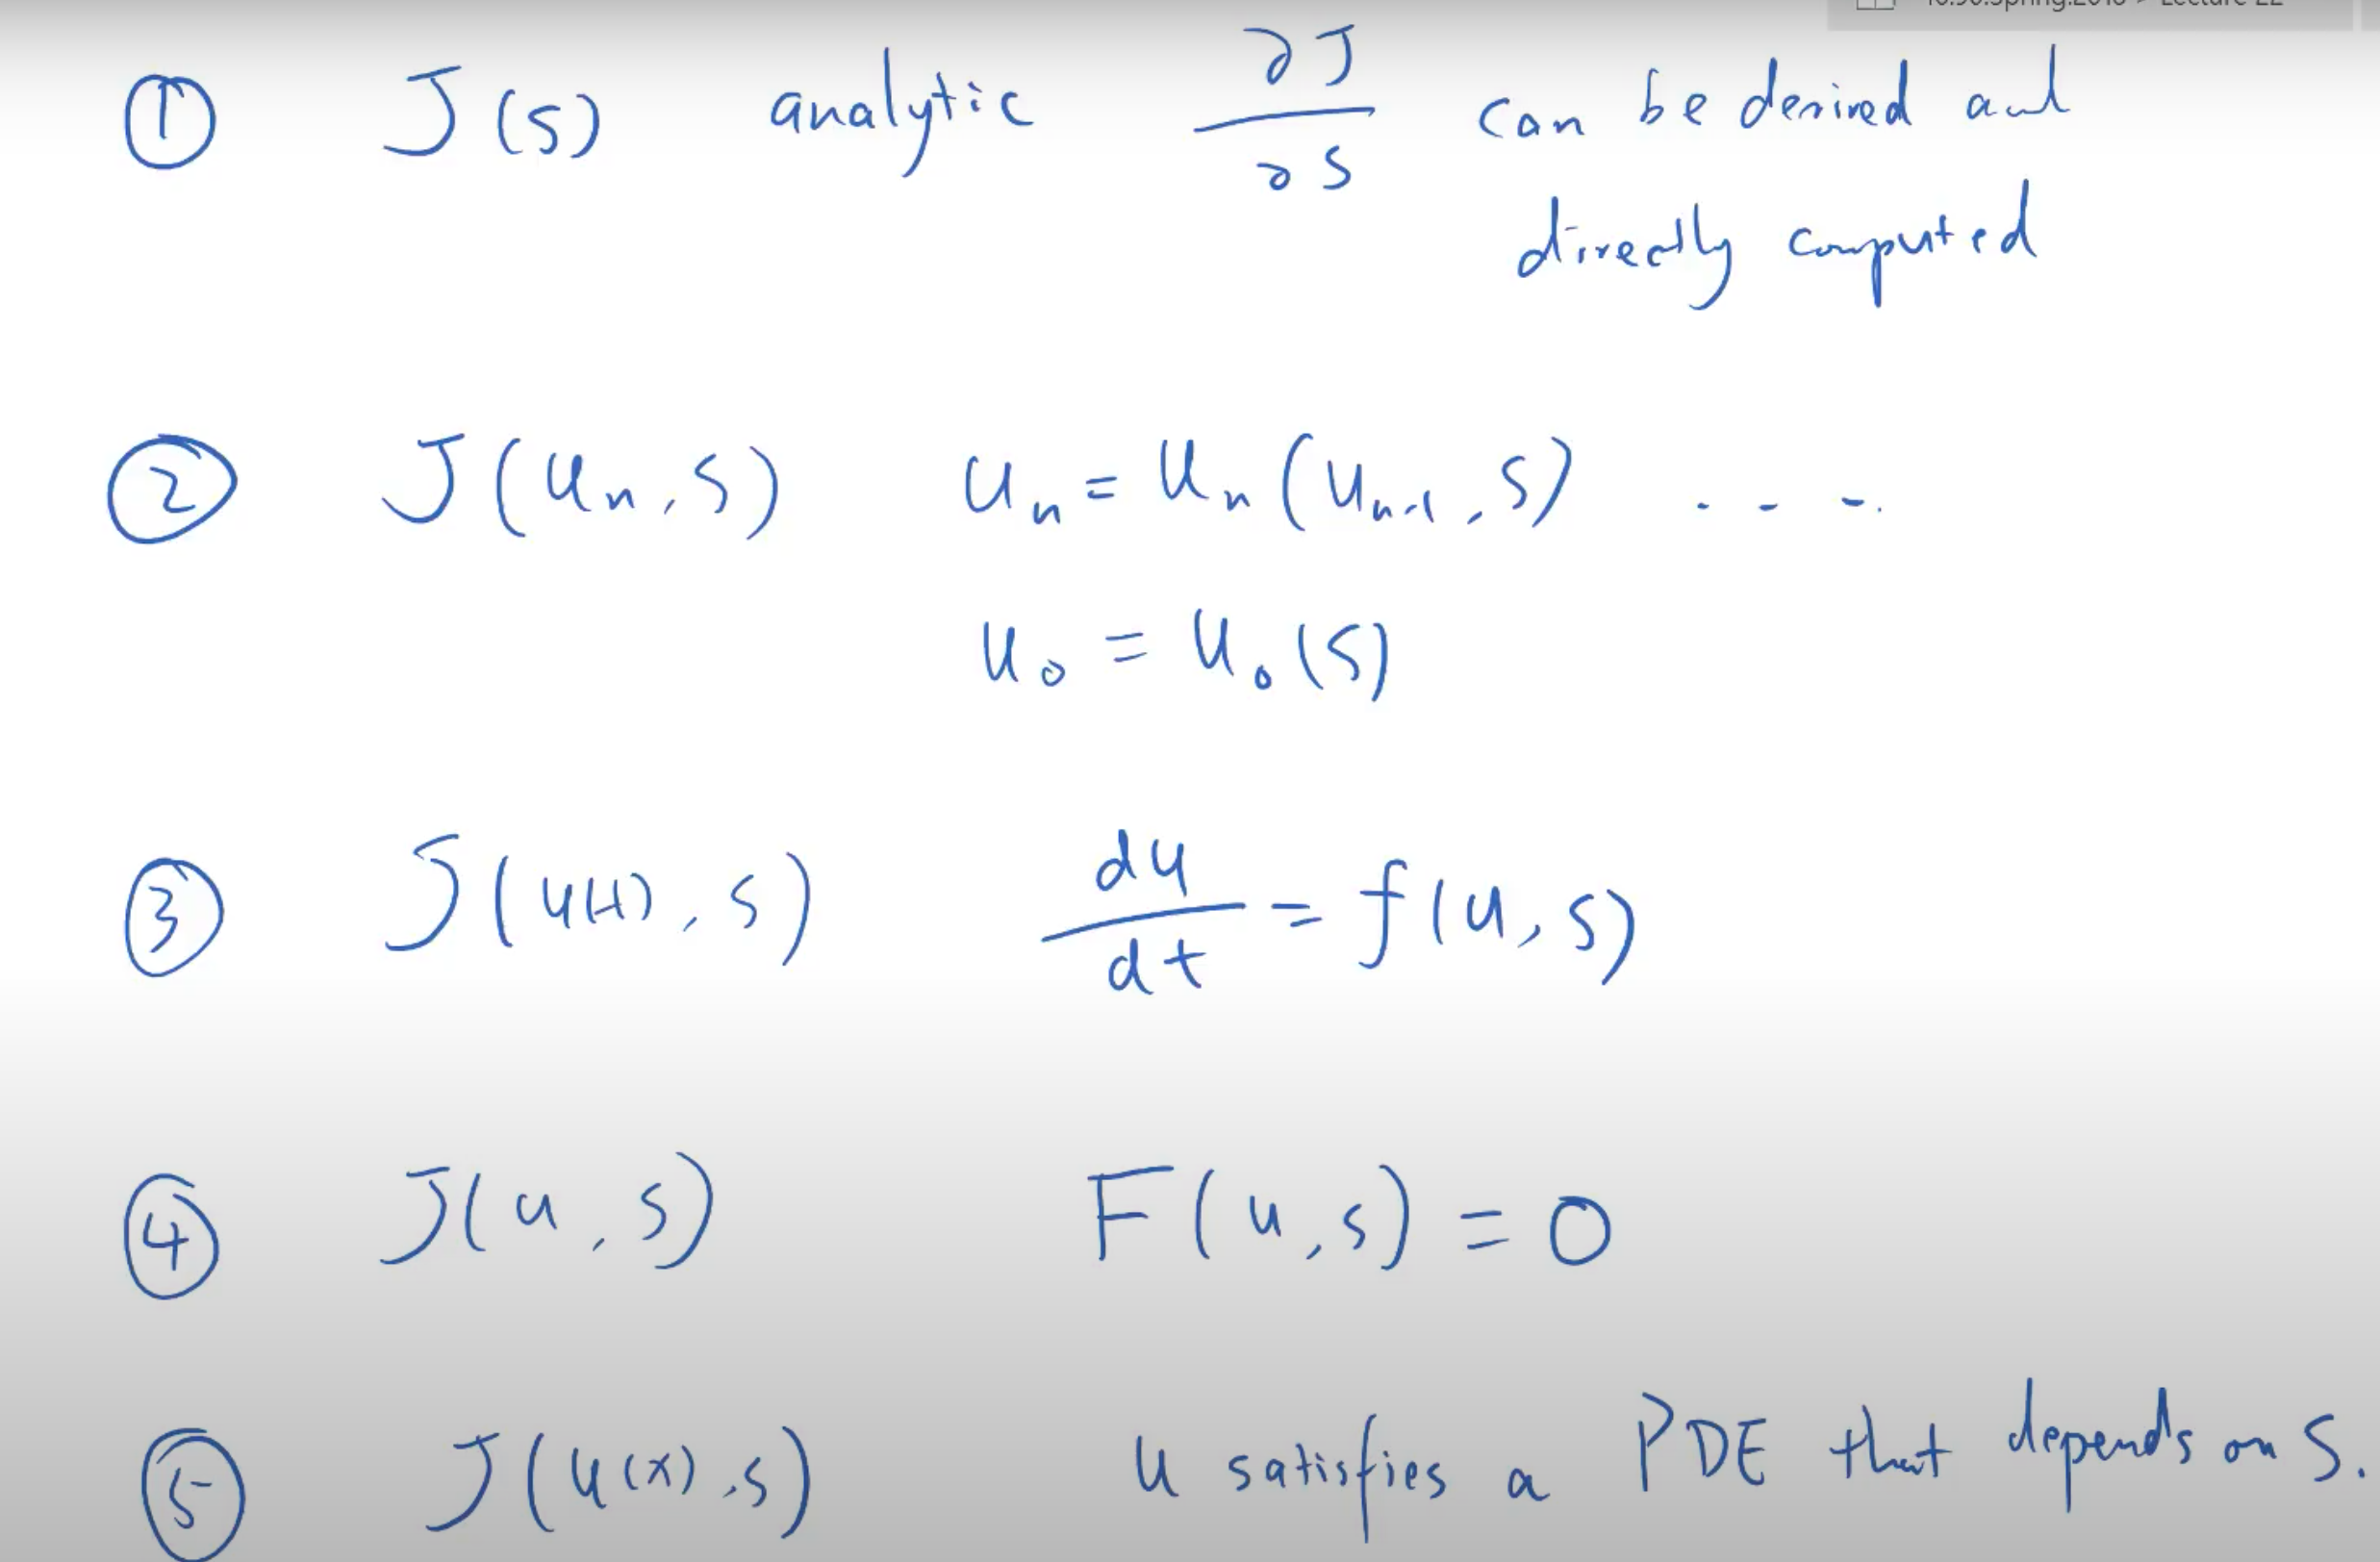 ① J(s) analytic ∂J/∂s can be derived and
directly computed
② J(u_n, s) u_n = u_n(u_{n-1}, s) ....
u_0 = u_0(s)
③ J(u(t), s) du/dt = f(u, s)
④ J(u, s) F(u, s) = 0
⑤ J(u(x), s) u satisfies a PDE that depends on s.